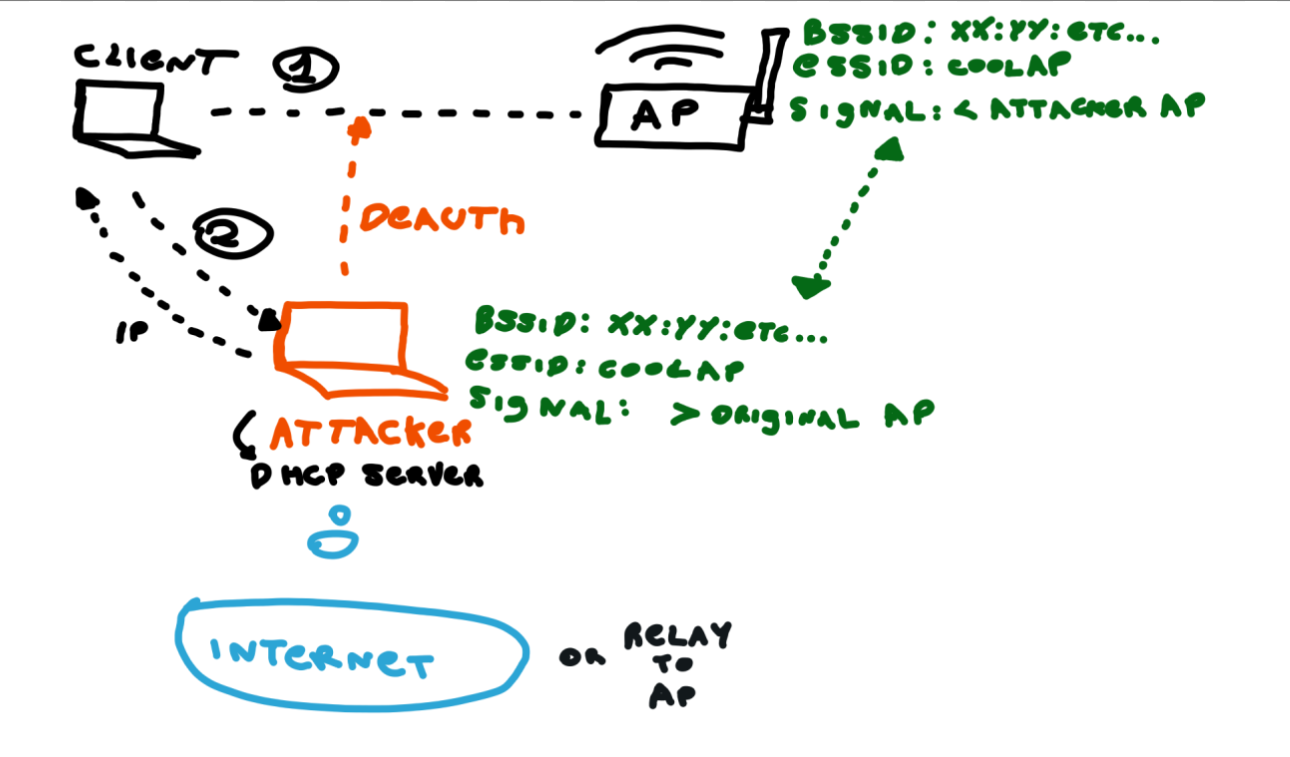 CLIENT
1
AP
BSSID: XX:YY:ETC...
ESSID: COOLAP
SIGNAL: < ATTACKER AP
DEAUTH
2
IP
BSSID: XX:YY:ETC...
ESSID: COOLAP
SIGNAL: > ORIGINAL AP
ATTACKER
DHCP SERVER
INTERNET
OR
RELAY
TO
AP